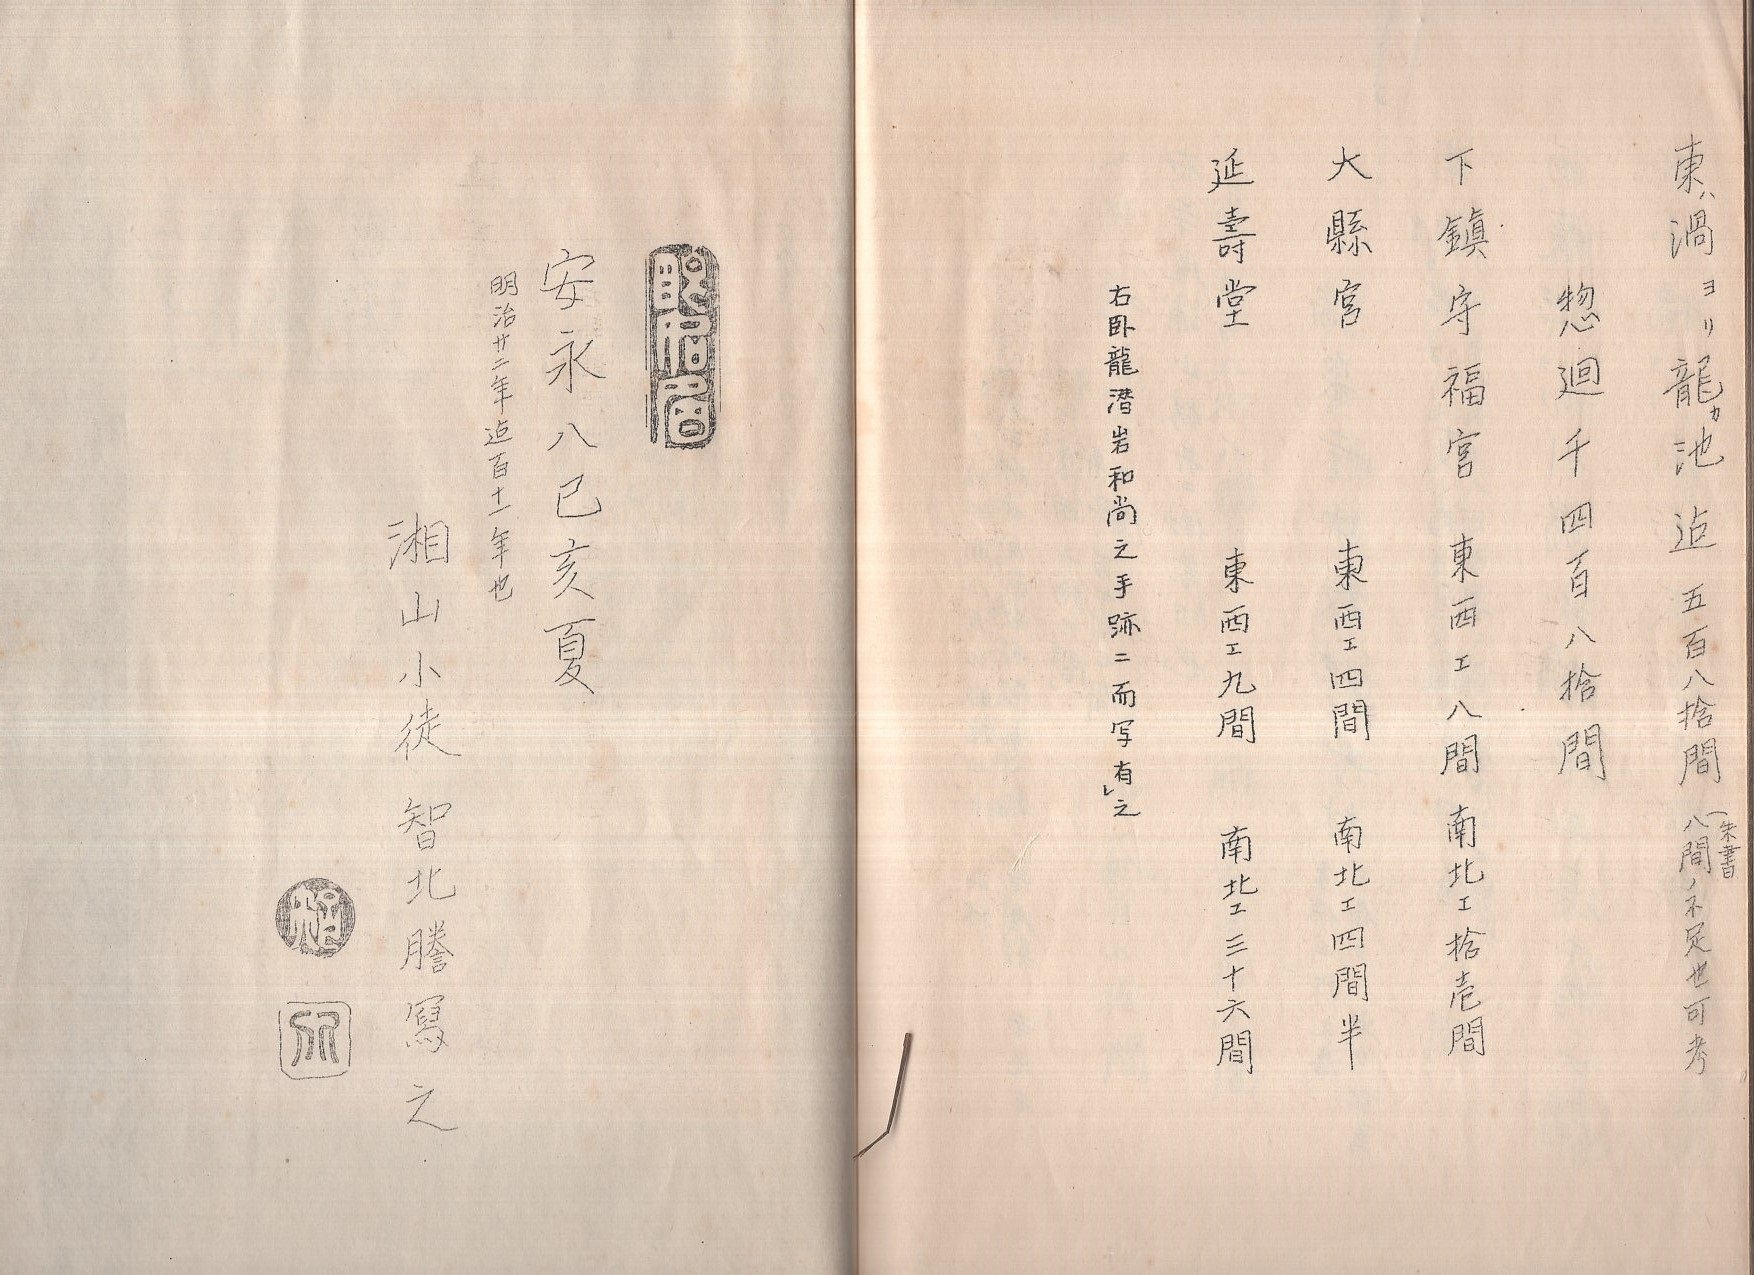 東ハ渦ヨリ龍カ池迠 五百八拾間 八間ノ不足也可考
(朱書
惣廻千四百八拾間
下鎮守福宮 東西エ八間 南北エ拾壱間
大縣宮 東西エ四間 南北エ四間半
延壽堂 東西エ九間 南北エ三十六間
右卧龍潜岩和尚之手跡ニ而写有レ之
安永八已亥夏
明治廿二年迠百十一年也
湘山小徒 智北謄寫之